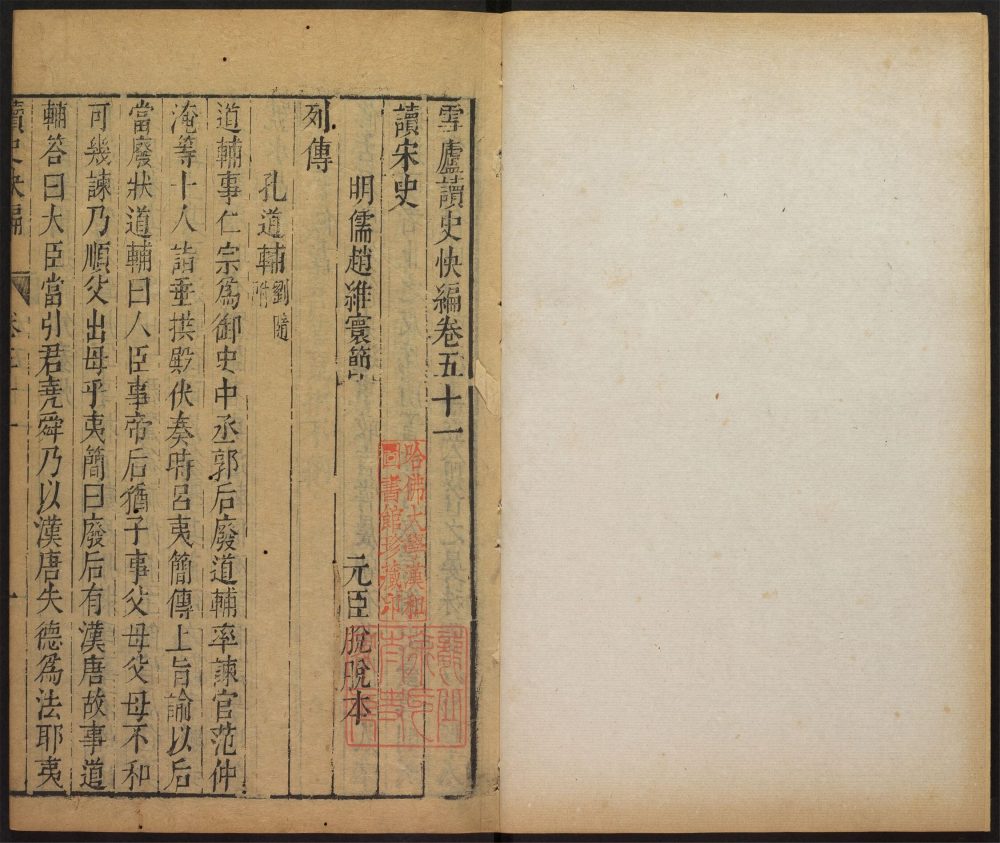 雪廬讀史快編卷五十一
讀宋史
明儒趙維寰節 元臣脫脫本
列傳
孔道輔 劉隨附
道輔事仁宗為御史中丞郭后廢道輔率諫官范仲
淹等十人詣垂拱殿伏奏時呂夷簡傳上旨諭以后
當廢狀道輔曰人臣事帝后猶子事父母父母不和
可幾諫乃順父出母乎夷簡曰廢后有漢唐故事道
輔答曰大臣當引君堯舜乃以漢唐失德為法耶夷
讀史快編 卷五十一 一
哈佛大學漢和
圖書館珍藏印